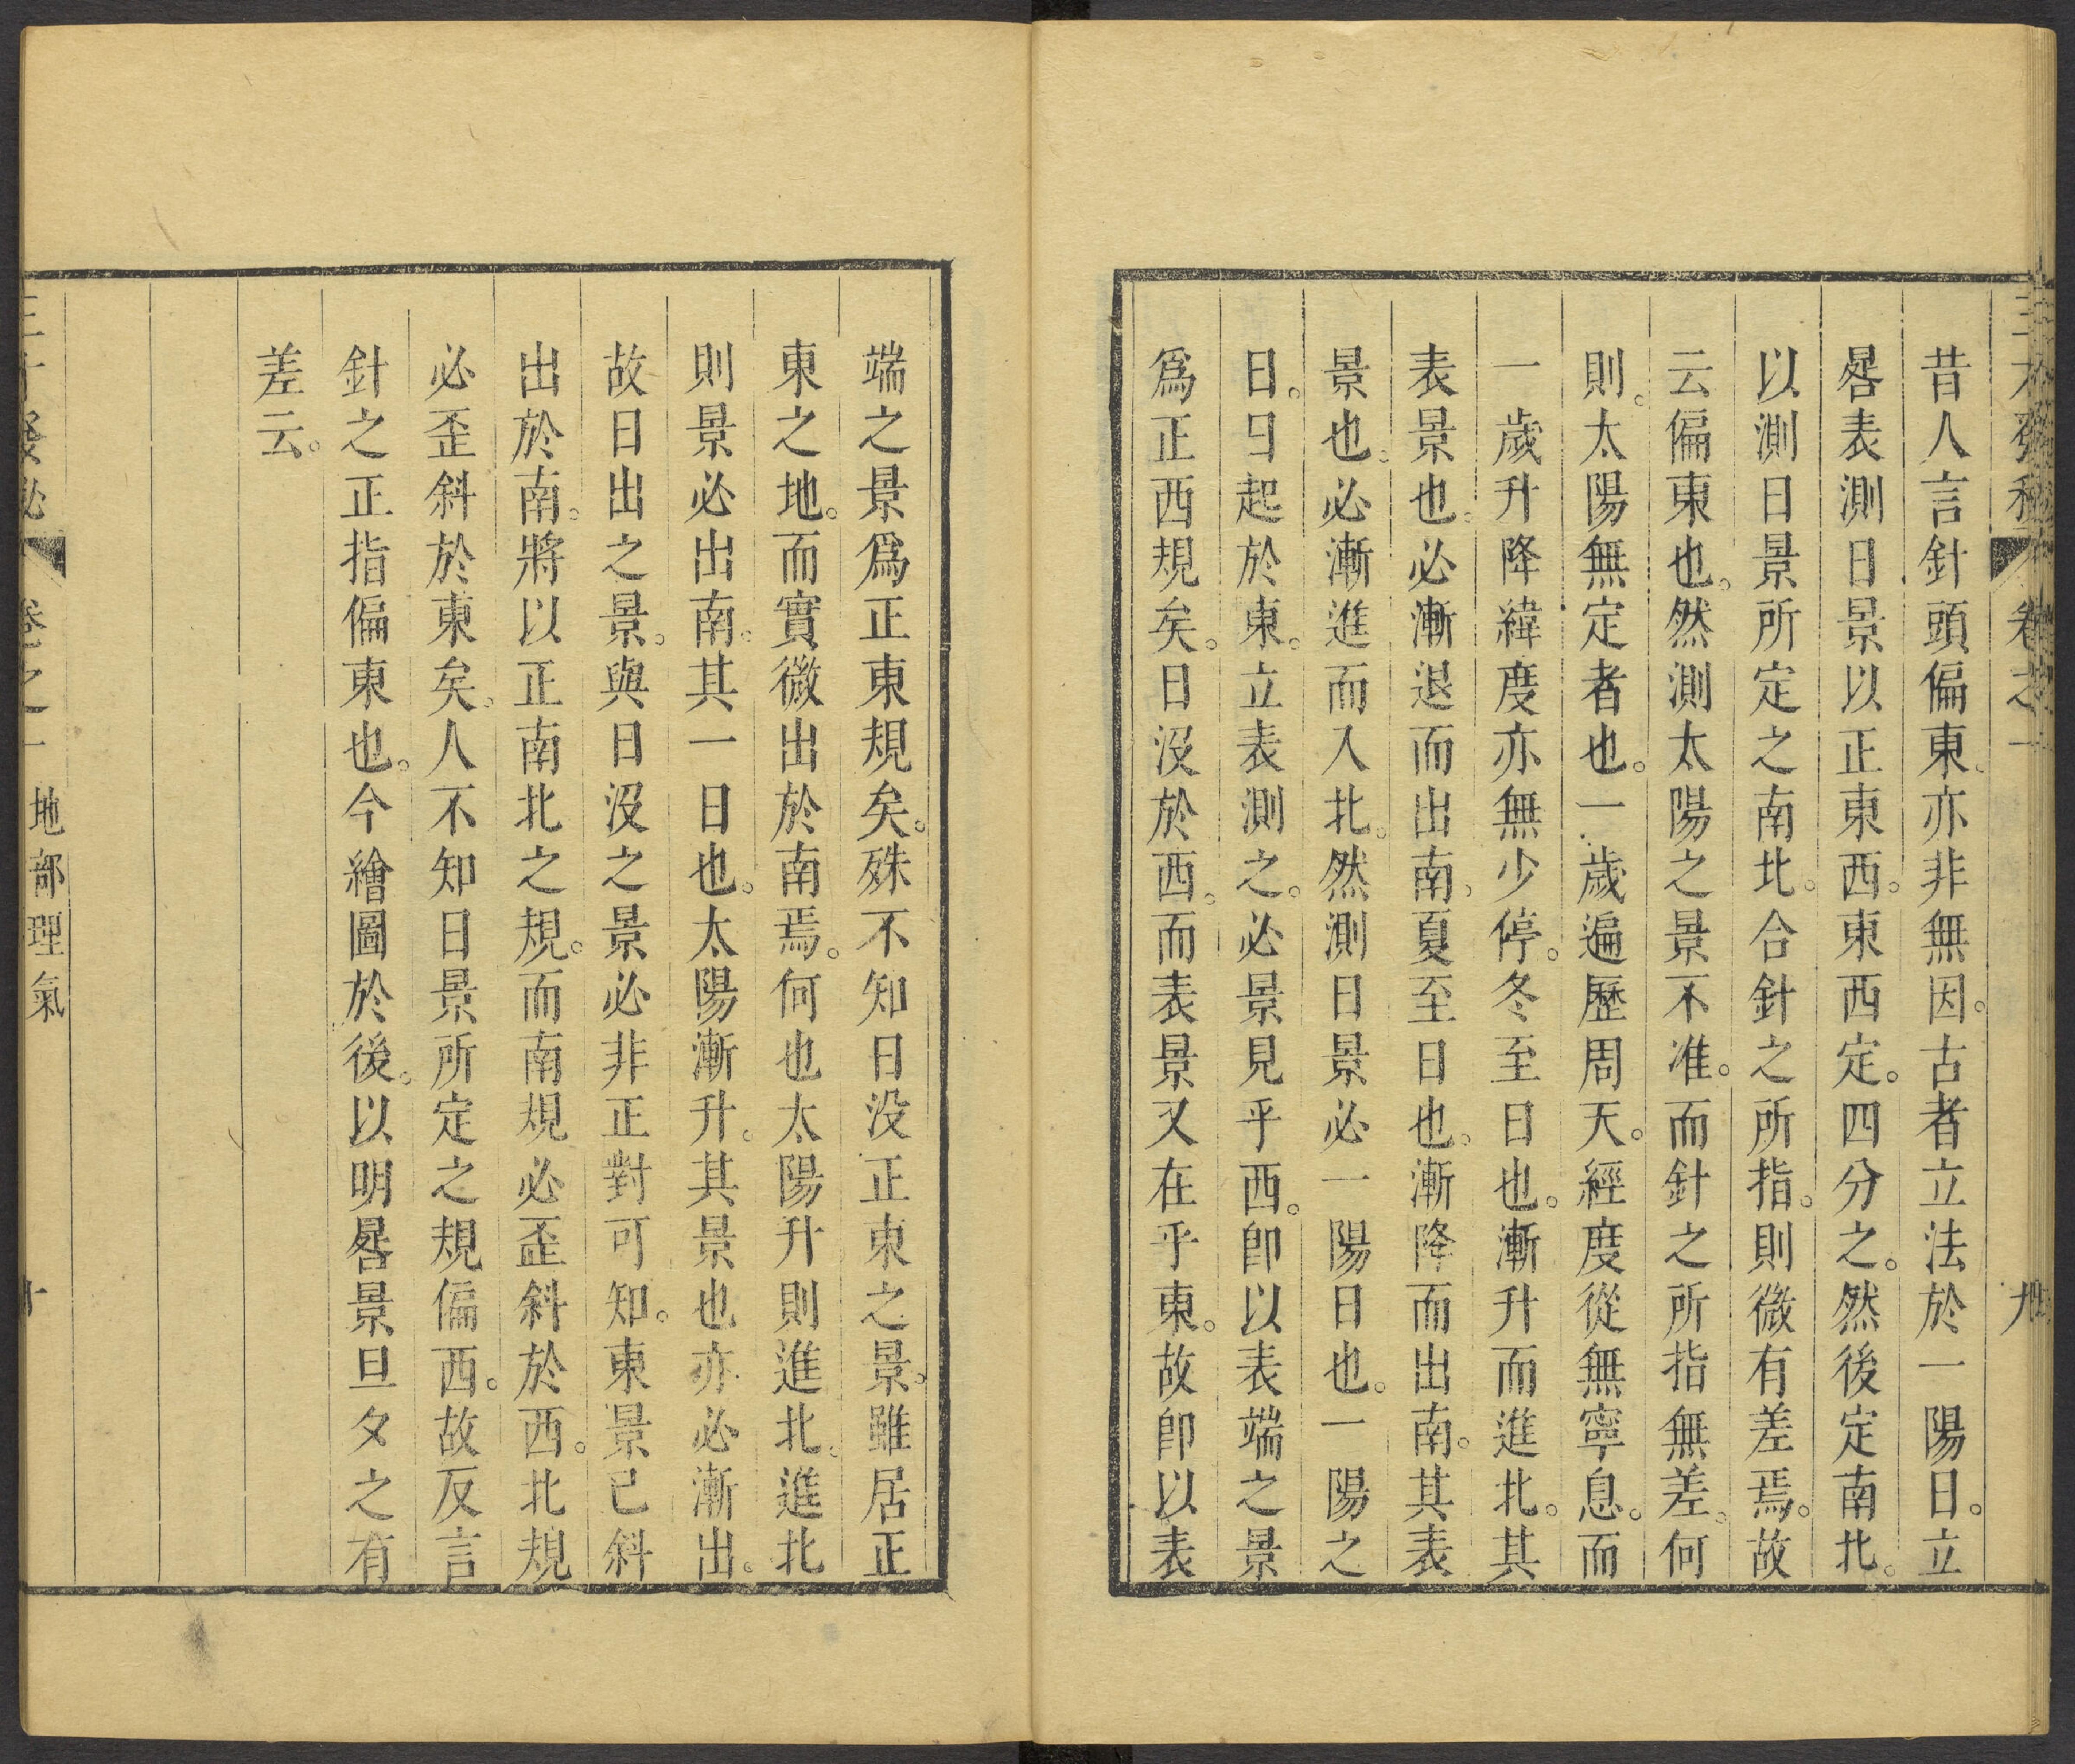 卷之一 九
昔人言針頭偏東亦非無因。古者立法於一陽日。立
晷表測日景以正東西。東西定。四分之。然後定南北。
以測日景所定之南北。合針之所指。則微有差焉。故
云偏東也。然測太陽之景不准。而針之所指無差。何
則。太陽無定者也。一歲遍歷周天。經度從無寧息。而
一歲升降緯度亦無少停。冬至日也。漸升而進北。其
表景也。必漸退而出南。夏至日也。漸降而出南。其表
景也。必漸進而入北。然測日景必一陽日也。一陽之
日。日起於東。立表測之。必景見乎西。卽以表端之景
爲正西規矣。日沒於西。而表景又在乎東。故卽以表
端之景爲正東規矣。殊不知日没正東之景。雖居正
東之地。而實微出於南焉。何也太陽升則進北。進北
則景必出南。其一日也。太陽漸升。其景也亦必漸出。
故日出之景。與日沒之景必非正對可知。東景已斜
出於南。將以正南北之規。而南規必歪斜於西。北規
必歪斜於東矣。人不知日景所定之規偏西。故反言
針之正指偏東也。今繪圖於後。以明晷景旦夕之有
差云。
卷之一 地部理氣 十